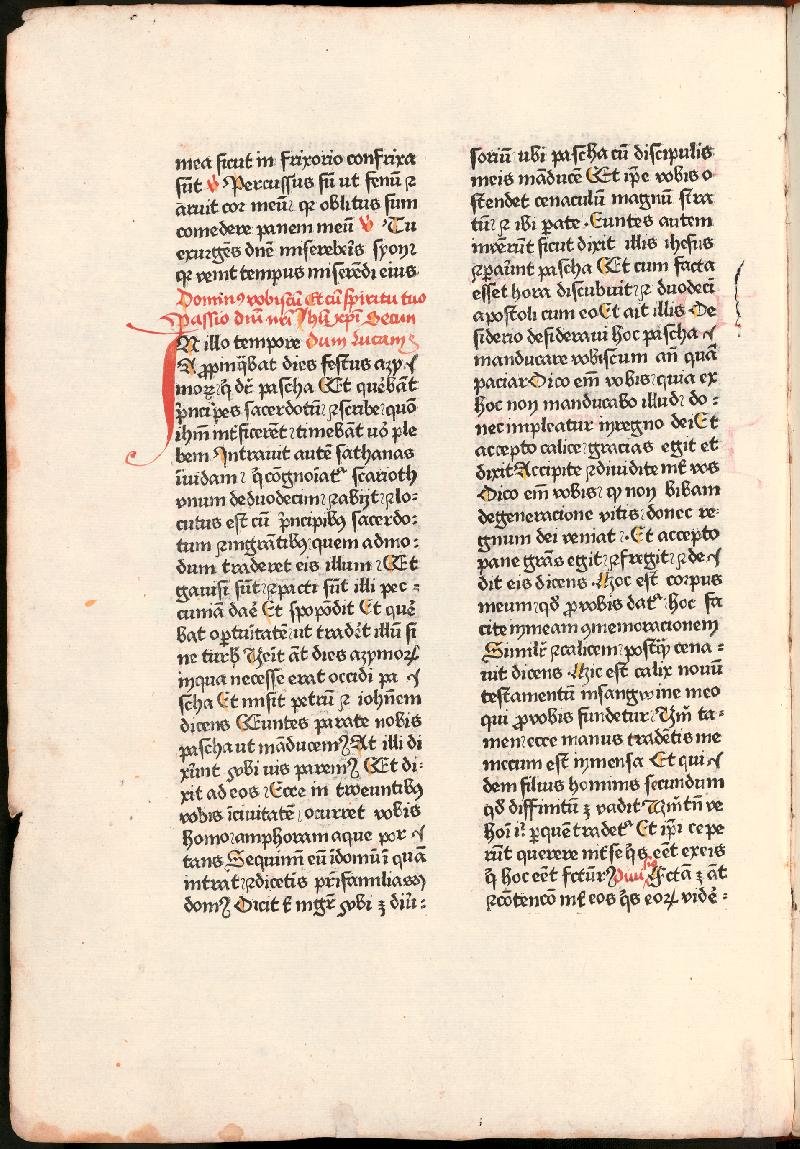 mea sicut in frixorio confrixa
sūt V Percussus sū ut fenū ⁊
aruit cor meū: qr oblitus sum
comedere panem meū V Tu
exurgēs dnē misereberis syon:
qr venit tempus miserēdi eius
Dominꝰ vobiscū Et cū spiritu tuo
Passio dnī nrī Jhū xp̄i Secun
IN illo tempore dum Lucam
Appropīq̄bat dies festus azy
moꝝ: q̄ dr̄ pascha Et querēbāt
p̄ncipes sacerdotū: ⁊ scribe: quō
ihm̄ int̄ficerēt: timebāt uō ple
bem Intrauit autē sathanas
ī iudam: q̄ cōgnoīat᷑ scarioth
vnum de duodecim: ⁊ abijt: ⁊ lo-
cutus est cū p̄ncipibꝰ sacerdo:
tum ⁊ mgrātibꝰ: quem admo:
dum traderet eis illum: Et
gauisi sūt: ⁊ pacti sūt illi pec:
cuniā daē Et spopōdit Et que
bat oportūitatē: ut tradet illū si
ne turbis Ueīt āt dies azymoꝝ
in qua necesse erat occidi pa
scha Et misit petrū ⁊ iohēem
dicens Euntes parate nobis
pascha ut māducemꝰ At illi di
xerūt vbi uis paremꝰ Et di-
xit ad eos: Ecce in troeuntibus
vobis ī ciuitatē: ocurret vobis
homo: amphoram aque por
tans Sequimī eū ī domū: ī quā
intrat: ⁊ dicetis pr̄i familias
domꝰ Dicit t̄ mgr̄ vbi ē diu:
soriū ubi pascha cū discipulis
meis māducē Et ip̄e vobis o
stendet cenaculū magnū stra
tū: ⁊ ibi parate Euntes autem
inuenerūt sicut dixit illis ihesus
⁊ parauērt pascha Et cum facta
esset hora discubuit: ⁊ duodecī
apostoli cum eo Et ait illis De
siderio desideraui hoc pascha
manducare vobiscum an̄ quā
paciar Dico em̄ vobis: quia ex
hoc non manducabo illud: do:
nec impleatur in regno dei Et
accepto calice: gracias egit et
dixit Accipite ⁊ diuidite int̄ vos
Dico em̄ vobis: qꝫ non bibam
de generacione vitis: donec re-
gnum dei veniat: Et accepto
pane grās egit: ⁊ fregit: ⁊ de
dit eis dicens Hoc est corpus
meum: qd̄ pro vobis dat᷑: hoc fa
cite in meam ꝯmemoracionem
Similr̄ ⁊ calicem: postq̄ cena-
uit dicens Hic est calix nouū
testamentū in sangwine meo
qui pro vobis fundetur: Uerū ta-
men: ecce manus tradētis me
mecum est in mensa Et qui
dem filius hominis secundum
qd̄ diffinitū ē vadit Uerūtn̄ ve
hoī: il̄ per quē tradet᷑ Et ip̄i cepe
rūt querere int̄ se q̄s eēt ex eis
q̄ hoc eēt fctūrꝰ Diuisio Fctā ē āt
⁊ cōtencō int̄ eos q̄s eoꝝ vide-